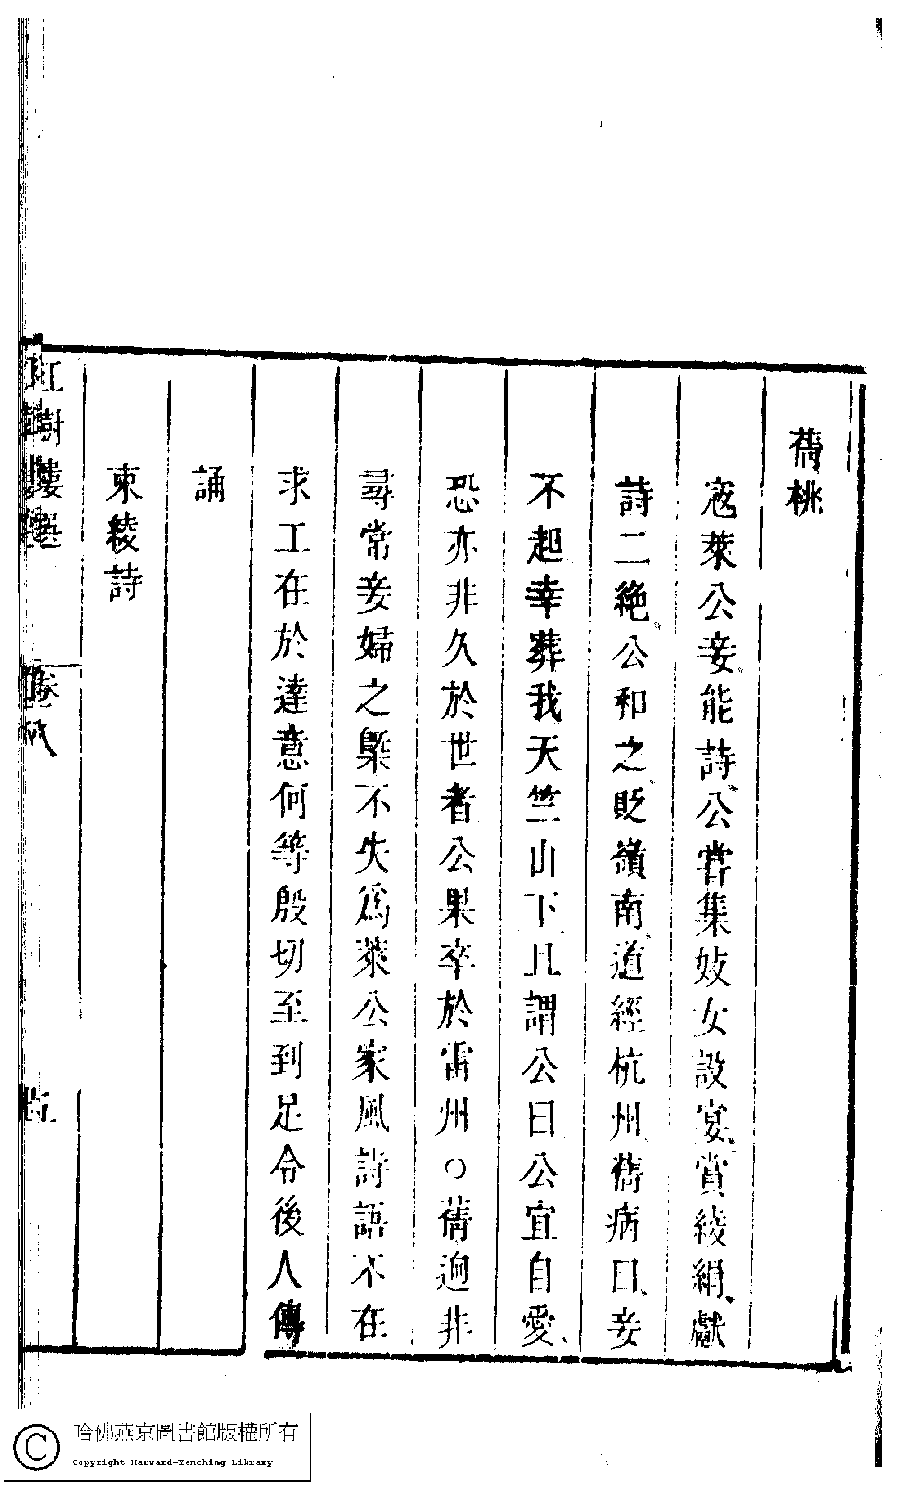 蒨桃
寇萊公妾能詩公嘗集妓女設宴賞綾絹獻
詩二絶公和之貶嶺南道經杭州蒨病曰妾
不起幸葬我天竺山下且謂公曰公宜自愛
恐亦非久於世者公果卒於雷州○蒨迥非
尋常妾婦之槩不失爲萊公家風詩語不在
求工在於達意何等殷切至到足令後人傳
誦
束綾詩
紅樹樓選
卷八
五
哈佛燕京圖書館版權所有
Copyright Harvard-Yenching Library